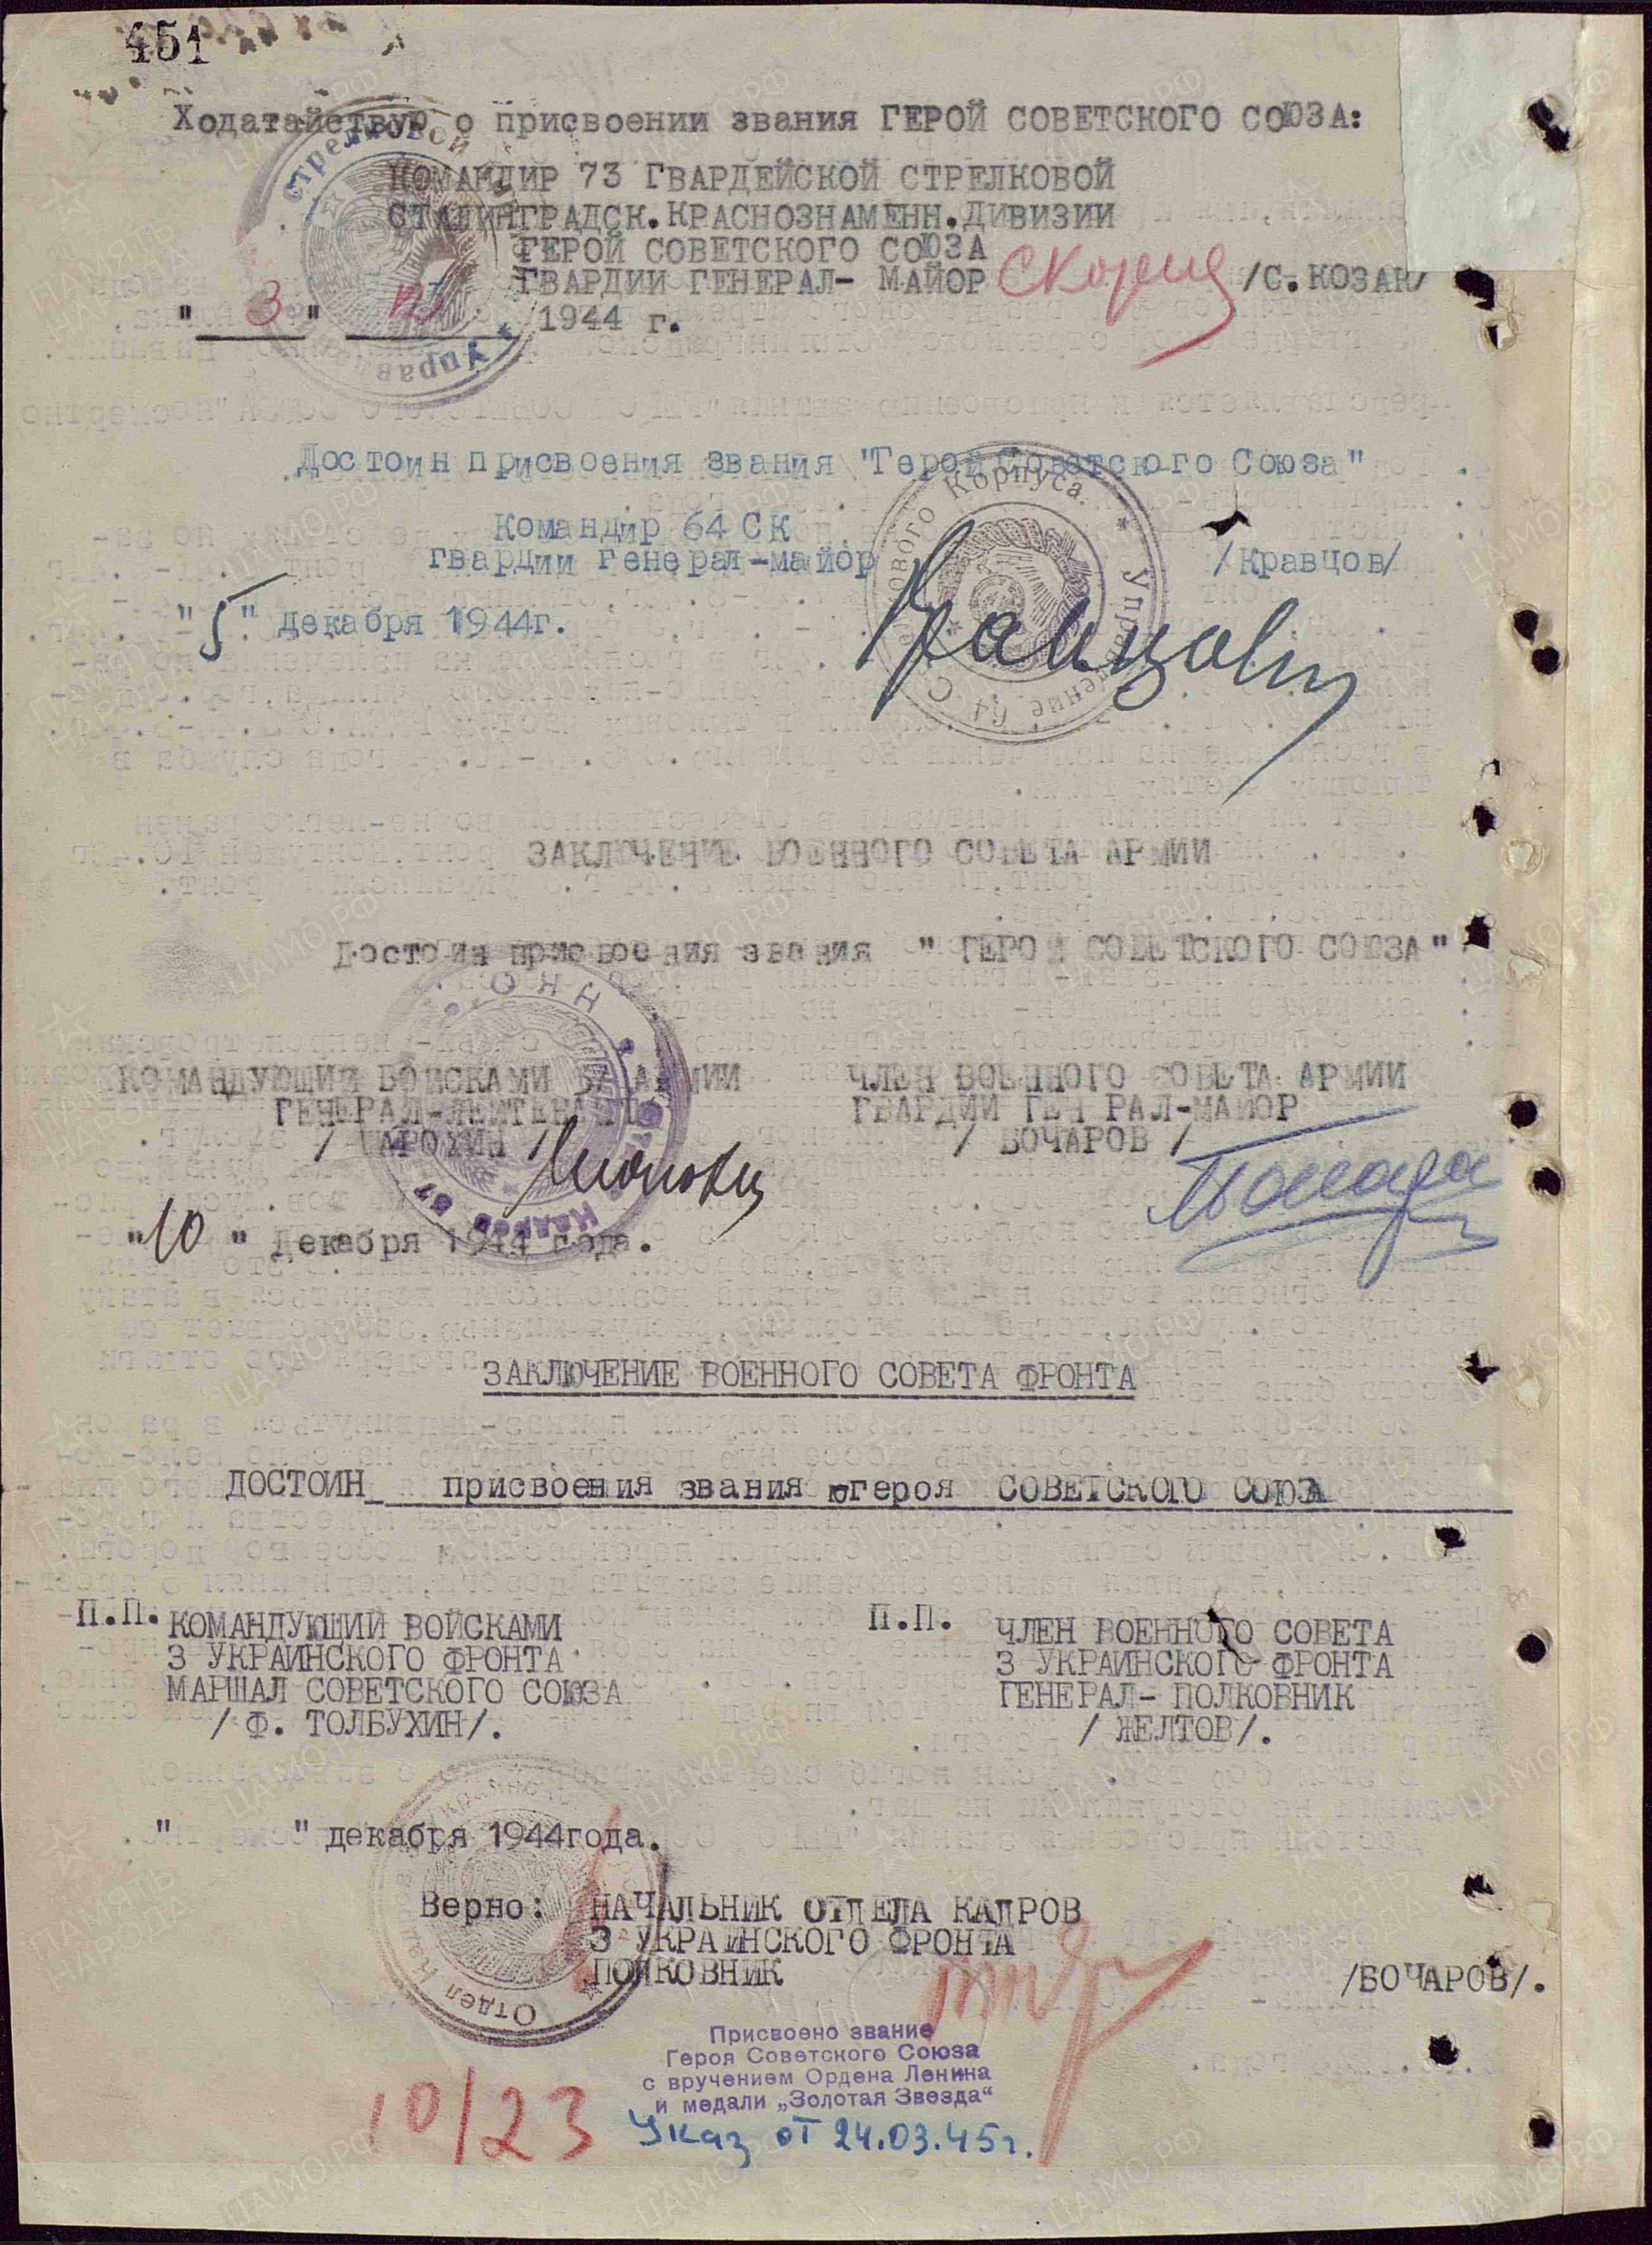 451
Ходатайствую о присвоении звания ГЕРОЙ СОВЕТСКОГО СОЮЗА:
КОМАНДИР 73 ГВАРДЕЙСКОЙ СТРЕЛКОВОЙ
СТАЛИНГРАДСК.КРАСНОЗНАМЕНН.ДИВИЗИИ
ГЕРОЙ СОВЕТСКОГО СОЮЗА
ГВАРДИИ ГЕНЕРАЛ- МАЙОР /С.КОЗАК/
"3" 1944 г.
Достоин присвоения звания "Герой Советского Союза"
Командир 64 СК
гвардии генерал-майор /Кравцов/
"5" декабря 1944г.
Корпуса * Управление 64 С
ЗАКЛЮЧЕНИЕ ВОЕННОГО СОВЕТА АРМИИ
Достоин присвоения звания " ГЕРОЙ СОВЕТСКОГО СОЮЗА"
КОМАНДУЮЩИЙ ВОЙСКАМИ 57 АРМИИ
ГЕНЕРАЛ-ЛЕЙТЕНАНТ
/ ШАРОХИН /
ЧЛЕН ВОЕННОГО СОВЕТА АРМИИ
ГВАРДИИ ГЕН РАЛ-МАЙОР
/ БОЧАРОВ /
"10 " Декабря 1944 года.
ЗАКЛЮЧЕНИЕ ВОЕННОГО СОВЕТА ФРОНТА
ДОСТОИН_ присвоения звания югероя СОВЕТСКОГО СОЮЗА
П.П. КОМАНДУЮЩИЙ ВОЙСКАМИ
3 УКРАИНСКОГО ФРОНТА
МАРШАЛ СОВЕТСКОГО СОЮЗА
/ Ф. ТОЛБУХИН/.
П.П. ЧЛЕН ВОЕННОГО СОВЕТА
3 УКРАИНСКОГО ФРОНТА
ГЕНЕРАЛ- ПОЛКОВНИК
/ ЖЕЛТОВ/.
" " декабря 1944года.
Верно: НАЧАЛЬНИК ОТДЕЛА КАДРОВ
3 УКРАИНСКОГО ФРОНТА
ПОЛКОВНИК /БОЧАРОВ/.
Присвоено звание
Героя Советского Союза
с вручением Ордена Ленина
и медали „Золотая Звезда“
Указ от 24.03.45г.
10/23